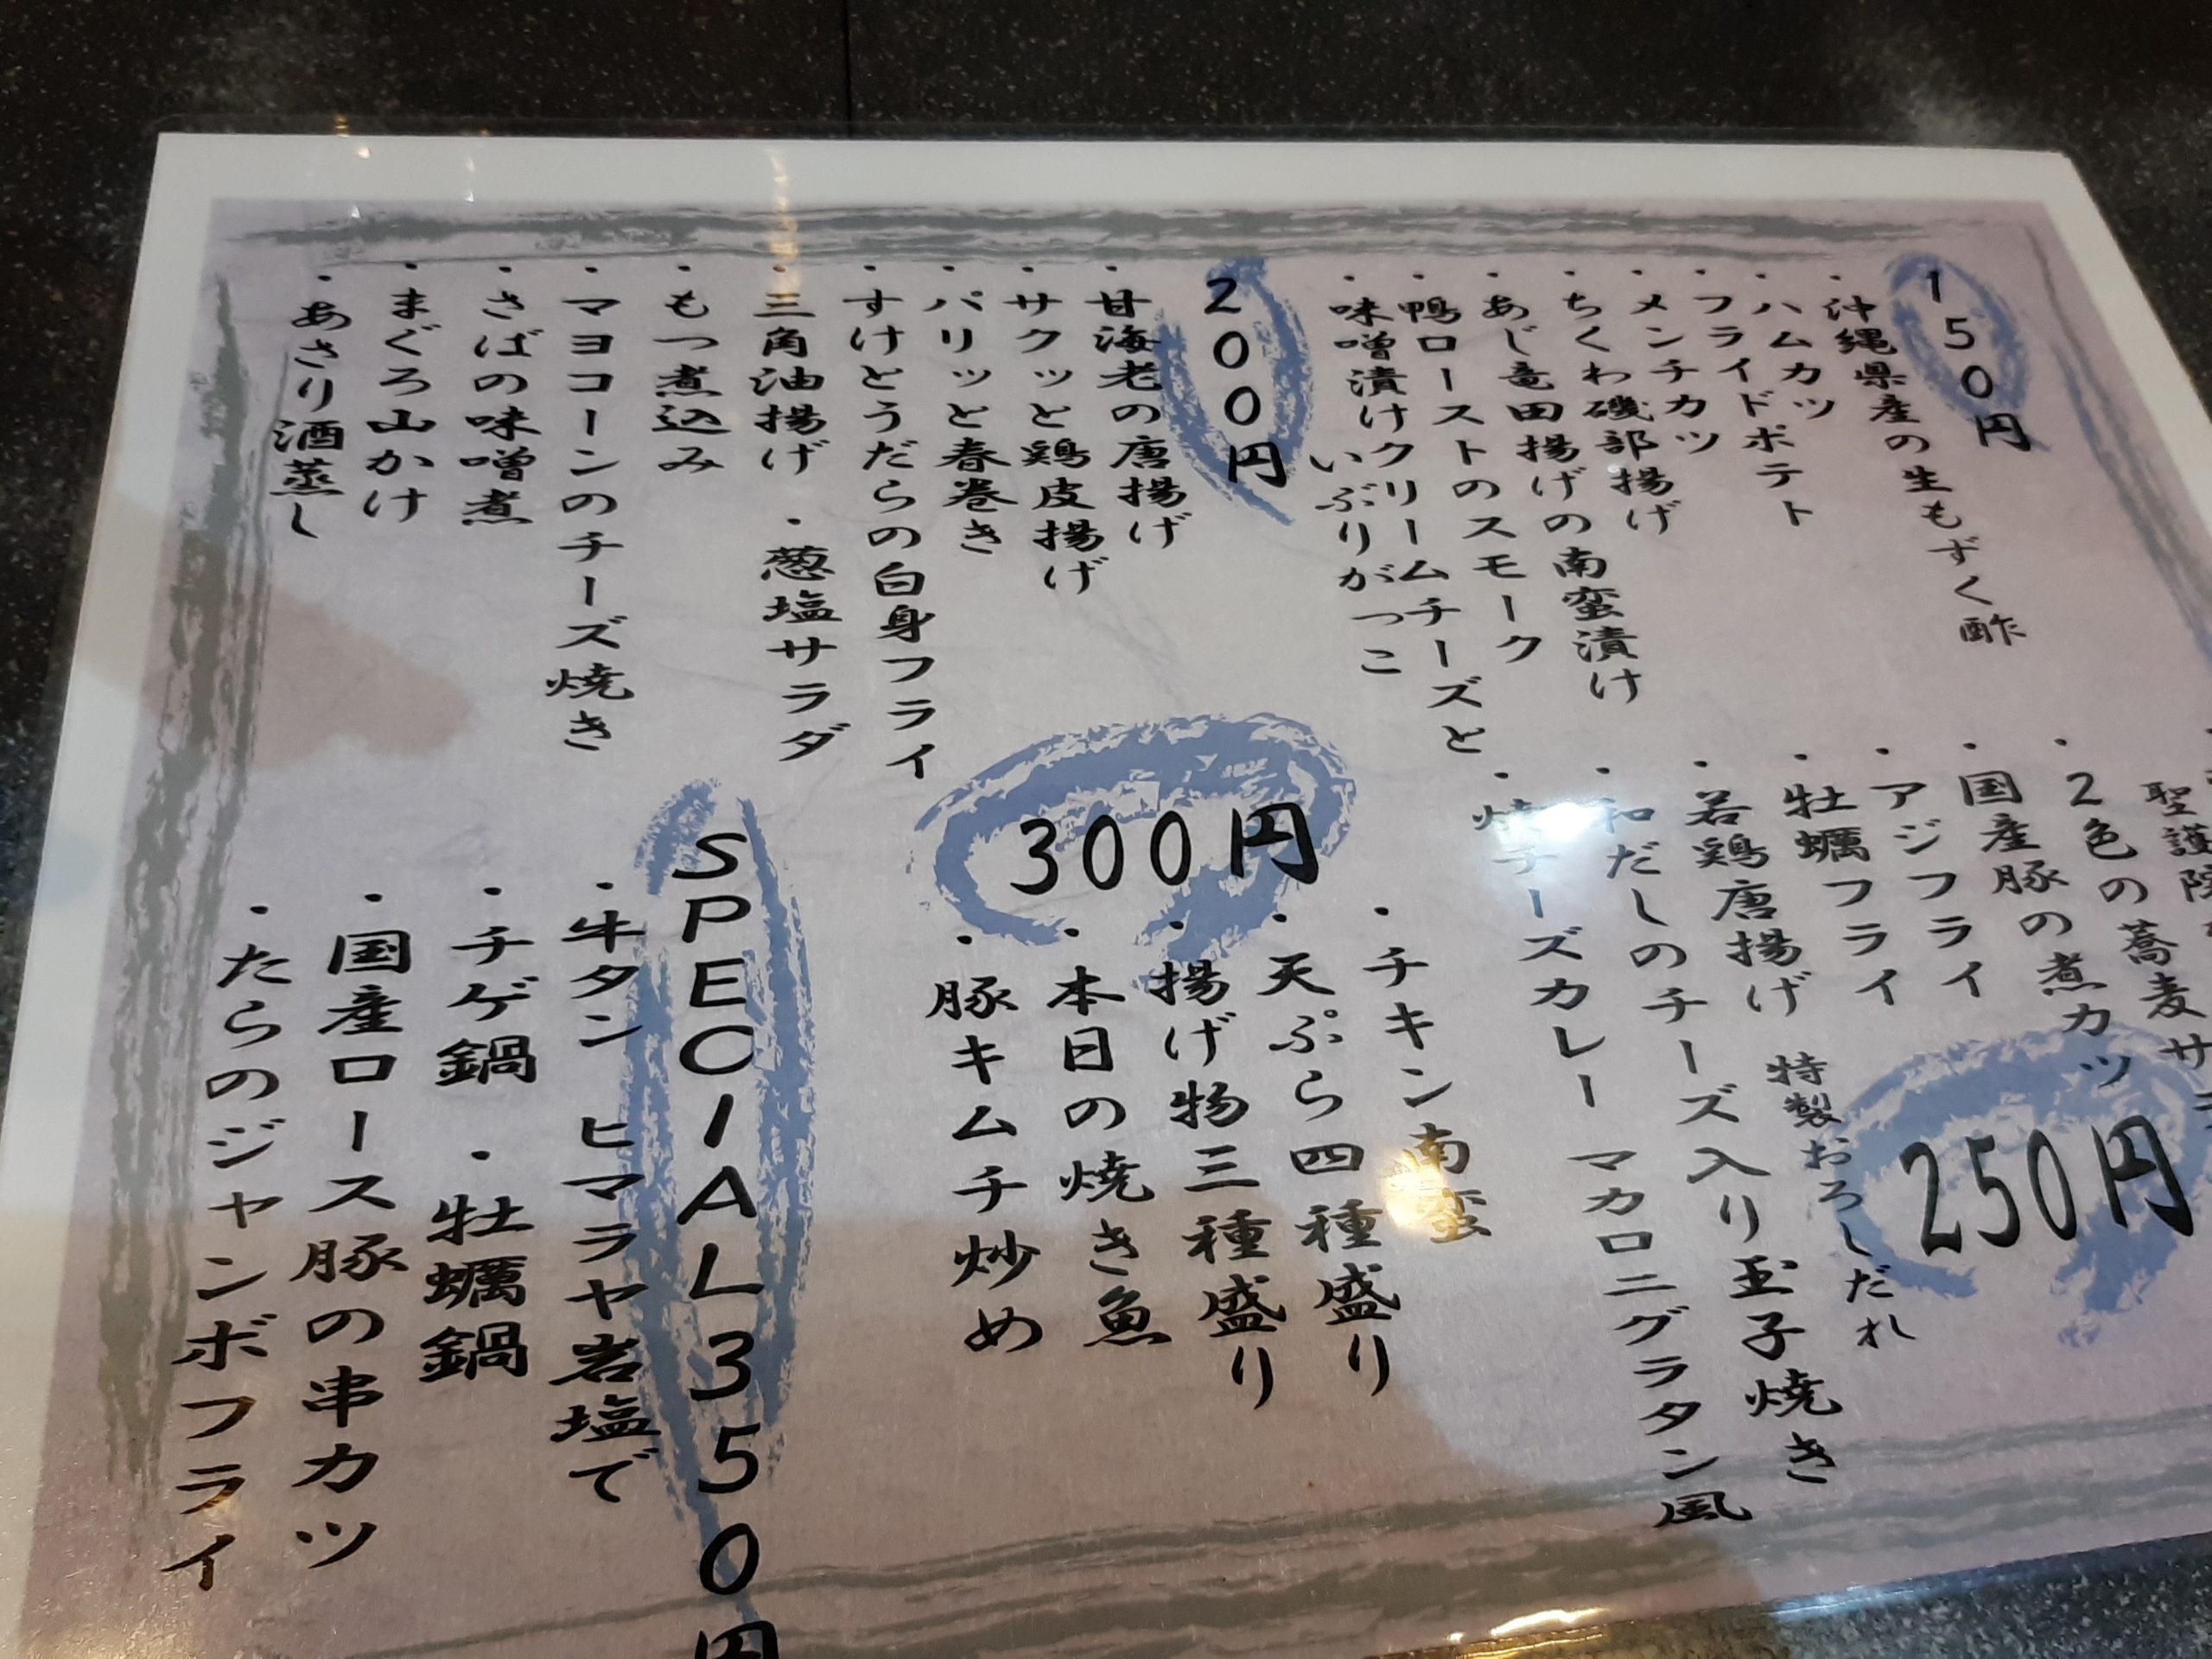 150円
・沖縄県産の生もずく酢
・ハムカツ
・フライドポテト
・メンチカツ
・ちくわ磯部揚げ
・あじ竜田揚げの南蛮漬け
・鴨ローストのスモーク
・味噌漬けクリームチーズと
いぶりがっこ
200円
・甘海老の唐揚げ
・サクッと鶏皮揚げ
・パリッと春巻き
・すけとうだらの白身フライ
・三角油揚げ ・葱塩サラダ
・もつ煮込み
・マヨコーンのチーズ焼き
・さばの味噌煮
・まぐろ山かけ
・あさり酒蒸し
250円
聖護院
・2色の蕎麦サ
・国産豚の煮カツ
・アジフライ
・牡蠣フライ
・若鶏唐揚げ 特製おろしだれ
・和だしのチーズ入り玉子焼き
・焼チーズカレー マカロニグラタン風
300円
・チキン南蛮
・天ぷら四種盛り
・揚げ物三種盛り
・本日の焼き魚
・豚キムチ炒め
SPECIAL350円
・牛タン ヒマラヤ岩塩で
・チゲ鍋 ・牡蠣鍋
・国産ロース豚の串カツ
・たらのジャンボフライ